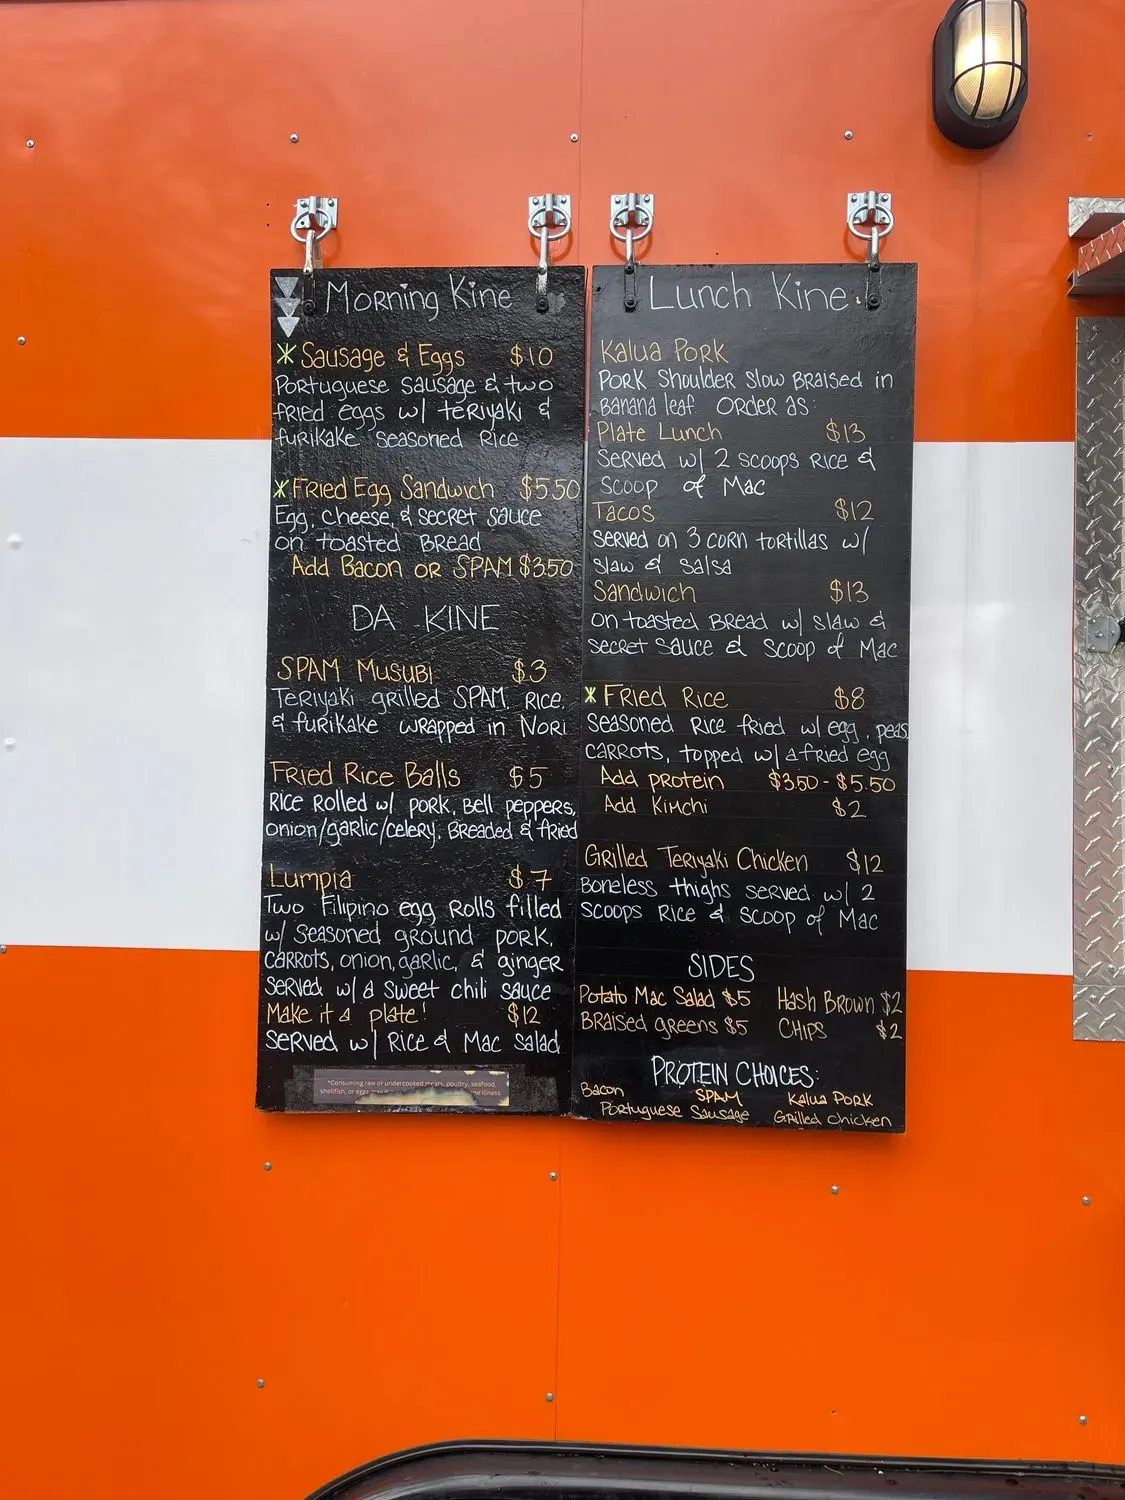 Morning Kine
* Sausage & Eggs $10
Portuguese Sausage & two
fried eggs w/ teriyaki &
furikake seasoned Rice
* Fried Egg Sandwich $5.50
Egg, cheese, & secret sauce
on toasted Bread
Add Bacon or SPAM $3.50
DA KINE
SPAM Musubi $3
Teriyaki grilled SPAM, Rice,
& furikake wrapped in Nori
Fried Rice Balls $5
Rice Rolled w/ pork, Bell peppers,
onion/garlic/celery, Breaded & fried
Lumpia $7
Two Filipino egg Rolls filled
w/ seasoned ground pork,
carrots, onion, garlic, & ginger
served w/ a sweet chili sauce
Make it a plate! $12
served w/ Rice & Mac Salad
*Consuming raw or undercooked meats, poultry, seafood,
shellfish, or eggs illness
Lunch Kine
Kalua Pork
Pork Shoulder Slow Braised in
Banana leaf Order as:
Plate Lunch $13
Served w/ 2 scoops Rice &
Scoop of Mac
Tacos $12
served on 3 corn tortillas w/
slaw & salsa
Sandwich $13
on toasted Bread w/ slaw &
secret sauce & scoop of Mac
* Fried Rice $8
seasoned Rice fried w/ egg, peas,
carrots, topped w/ a fried egg
Add protein $3.50 - $5.50
Add Kimchi $2
Grilled Teriyaki Chicken $12
Boneless thighs served w/ 2
scoops Rice & scoop of Mac
SIDES
Potato Mac Salad $5 Hash Brown $2
Braised greens $5 CHIPS $2
PROTEIN CHOICES:
Bacon SPAM Kalua Pork
Portuguese Sausage Grilled Chicken